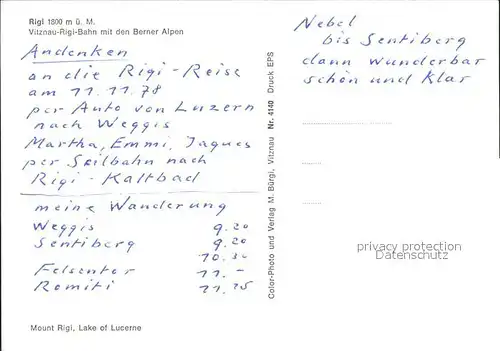 Rigi 1800 m ü. M.
Vitznau-Rigi-Bahn mit den Berner Alpen
Andenken
an die Rigi-Reise
am 11.11.78
per Auto von Luzern
nach Weggis
Martha, Emmi, Jaques
per Seilbahn nach
Rigi-Kaltbad
meine Wanderung
Weggis 9.20
Sentiberg 9.20
10.30
Felsentor 11.-
Romiti 11.25
Mount Rigi, Lake of Lucerne
Color-Photo und Verlag M. Bürgi, Vitznau Nr. 4140 Druck EPS
Nebel
bis Sentiberg
dann wunderbar
schön und Klar
privacy protection
Datenschutz